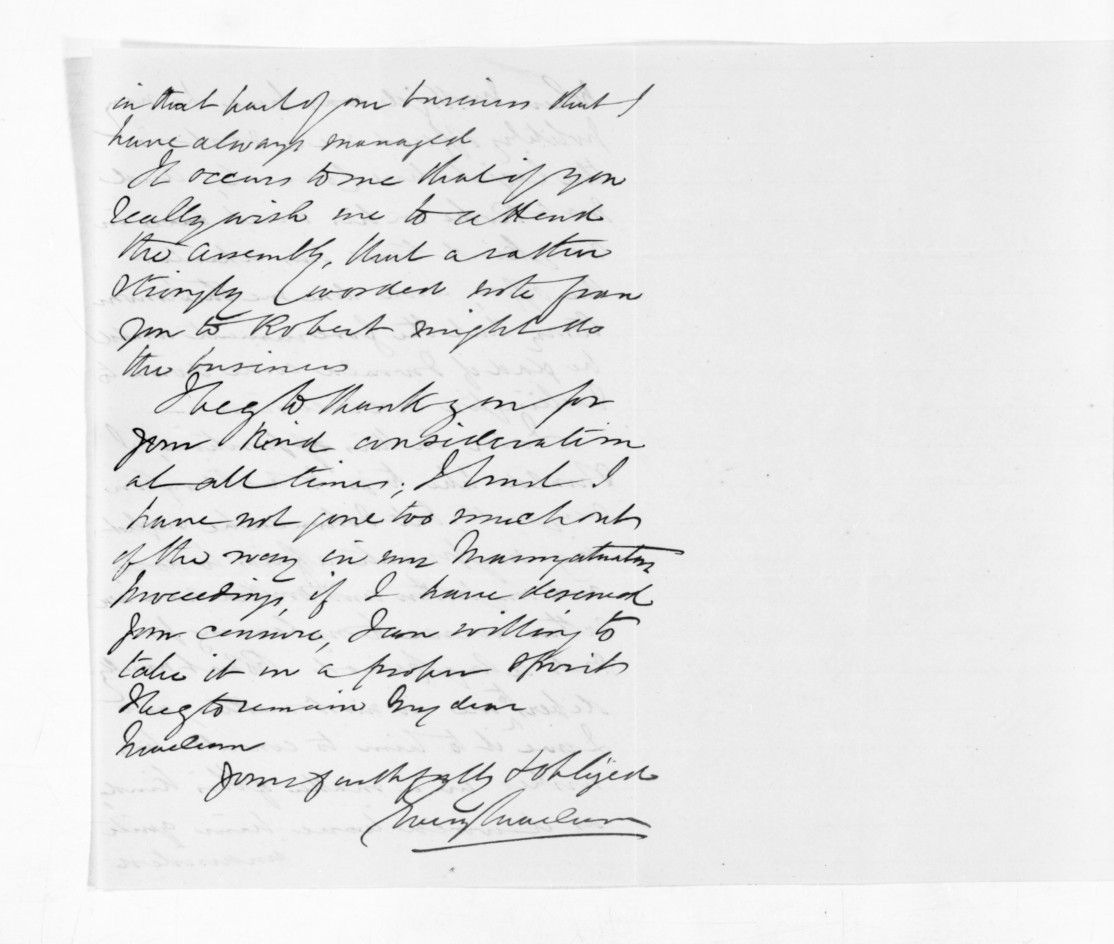 in that part of our business that I
have always managed
It occurs to me that if you
really wish me to attend
the Assembly, that a rather
strongly worded note from
you to Robert might do
the business
I beg to thank you for
your kind consideration
at all times; I trust I
have not gone too much out
of the way in my
proceedings, if I have deserved
your censure, I am willing to
take it in a proper spirit
I beg to remain My dear
McLean
Yours faithfully & obliged
McLean